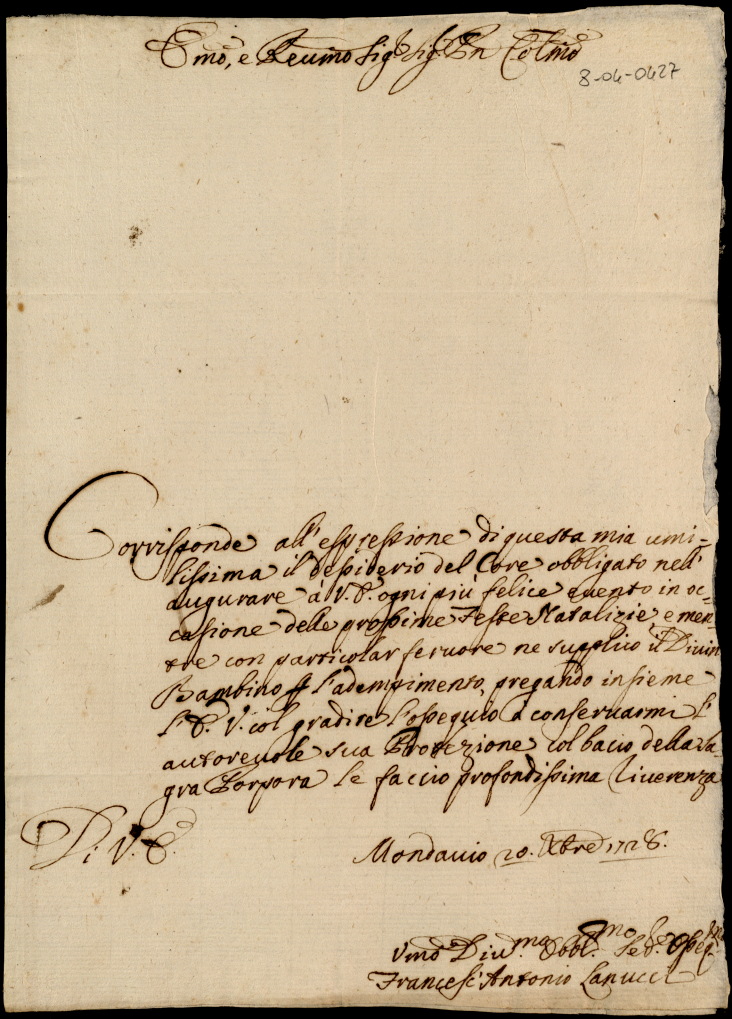 Emo, e Reumo Sig.r Sig.r Pn Colmo
8-04-0427
Corrisponde all'espressione di questa mia umi-
lissima il desiderio del Core obbligato nell'
augurare à V.E. ogni più felice euento in oc-
casione delle prossime Feste Natalizie, e men
tre con particolar feruore ne supplico il Diuin
Bambino p l'adempimento, pregando insieme
l'E.V. col gradire l'ossequio à conseruarmi l'
autoreuole sua Protezione col bacio della Sa-
gra Porpora le faccio profondissima riuerenza
Di V.E.
Mondauio 20. Xbre 1726.
Vmo Diu.mo Obbl.mo Se.r Osseq.mo
Francesc'Antonio Lanucci